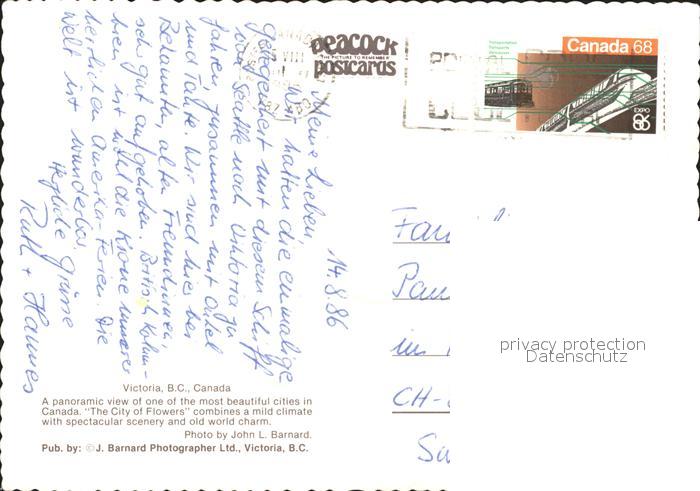 14.8.86
Meine Lieben,
Wir hatten die einmalige
Gelegenheit mit diesem Schiff
von Seattle nach Viktoria zu
fahren, zusammen mit Onkel
und Tante. Wir sind hier bei
Bekannten, alten Freundinnen,
sehr gut aufgehoben. British Kolum-
bien ist wohl die Krone unserer
herrlichen Amerika-Ferien. Die
Welt ist wunderbar.
Herzliche Grüsse
Ruth + Hannes
Peacock
THE PICTURE TO REMEMBER
postcards
Canada 68
Transportation
Transports
Vancouver
EXPO
86
Fam
in
CH-
privacy protection
Datenschutz
Victoria, B.C., Canada
A panoramic view of one of the most beautiful cities in
Canada. "The City of Flowers" combines a mild climate
with spectacular scenery and old world charm.
Photo by John L. Barnard.
Pub. by: ©J. Barnard Photographer Ltd., Victoria, B.C.